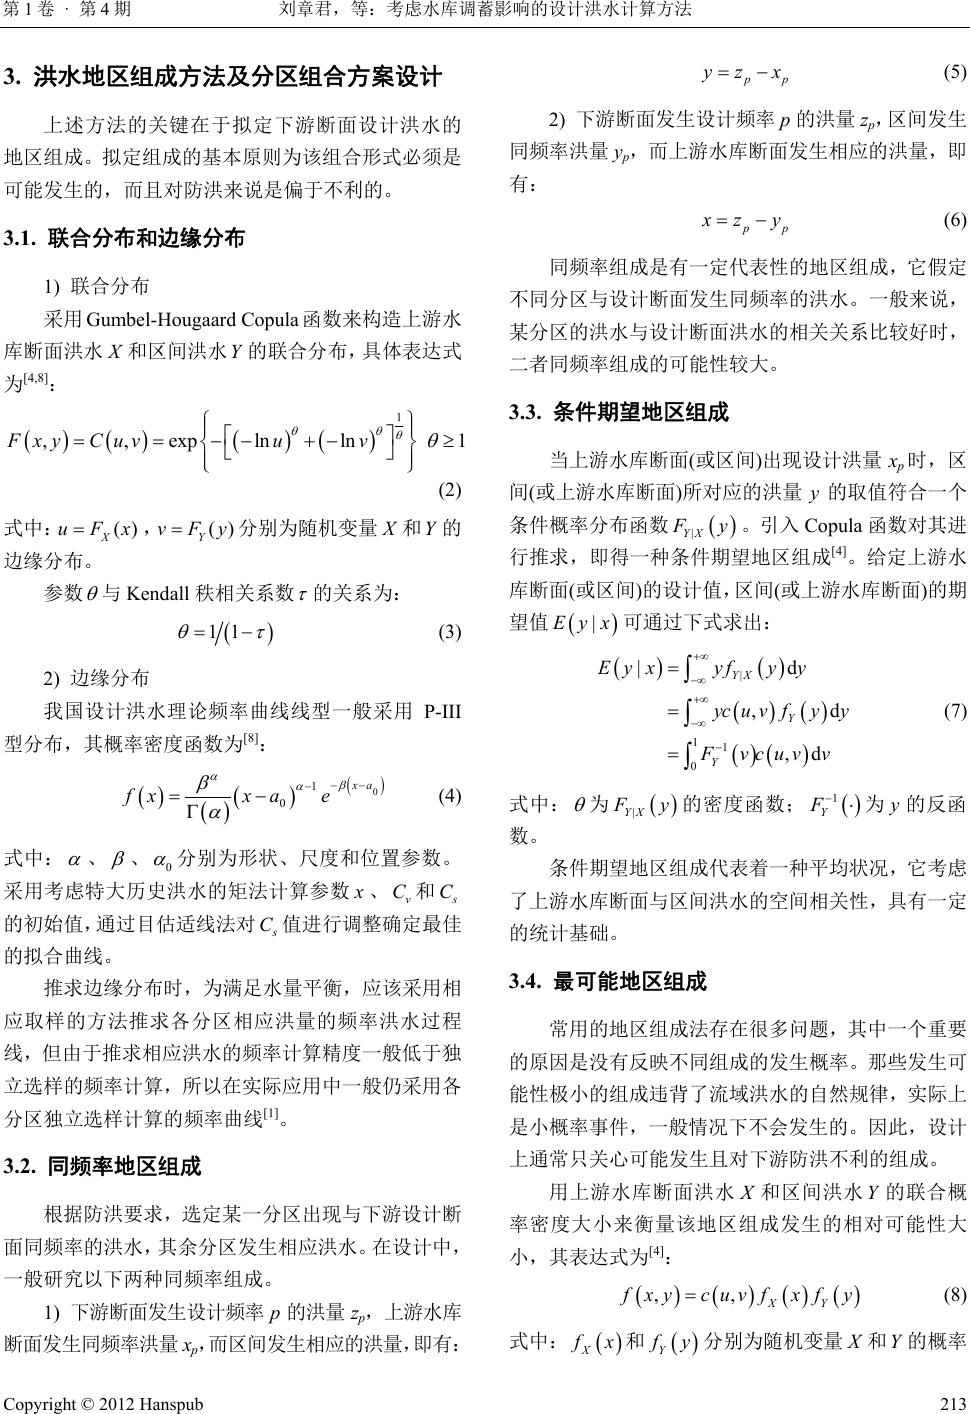 第 1 卷 · 第 4 期
刘章君，等：考虑水库调蓄影响的设计洪水计算方法
3. 洪水地区组成方法及分区组合方案设计
上述方法的关键在于拟定下游断面设计洪水的
地区组成。拟定组成的基本原则为该组合形式必须是
可能发生的，而且对防洪来说是偏于不利的。
3.1. 联合分布和边缘分布
1) 联合分布
采用 Gumbel-Hougaard Copula 函数来构造上游水
库断面洪水 X 和区间洪水 Y 的联合分布，具体表达式
为[4,8]：
F(x,y)=C(u,v)=exp{-[(-ln u)^θ+(-ln v)^θ]^(1/θ)} θ≥1
(2)
式中：u=F_X(x)，v=F_Y(y)分别为随机变量 X 和 Y 的
边缘分布。
参数 θ 与 Kendall 秩相关系数 τ 的关系为：
θ=1/(1-τ) (3)
2) 边缘分布
我国设计洪水理论频率曲线线型一般采用 P-III
型分布，其概率密度函数为[8]：
f(x)=β^α/Γ(α) (x-a_0)^(α-1) e^(-β(x-a_0)) (4)
式中：α、β、α_0 分别为形状、尺度和位置参数。
采用考虑特大历史洪水的矩法计算参数 x、C_v 和 C_s
的初始值，通过目估适线法对 C_s 值进行调整确定最佳
的拟合曲线。
推求边缘分布时，为满足水量平衡，应该采用相
应取样的方法推求各分区相应洪量的频率洪水过程
线，但由于推求相应洪水的频率计算精度一般低于独
立选样的频率计算，所以在实际应用中一般仍采用各
分区独立选样计算的频率曲线[1]。
3.2. 同频率地区组成
根据防洪要求，选定某一分区出现与下游设计断
面同频率的洪水，其余分区发生相应洪水。在设计中，
一般研究以下两种同频率组成。
1) 下游断面发生设计频率 p 的洪量 z_p，上游水库
断面发生同频率洪量 x_p，而区间发生相应的洪量，即有：
y=z_p-x_p (5)
2) 下游断面发生设计频率 p 的洪量 z_p，区间发生
同频率洪量 y_p，而上游水库断面发生相应的洪量，即
有：
x=z_p-y_p (6)
同频率组成是有一定代表性的地区组成，它假定
不同分区与设计断面发生同频率的洪水。一般来说，
某分区的洪水与设计断面洪水的相关关系比较好时，
二者同频率组成的可能性较大。
3.3. 条件期望地区组成
当上游水库断面(或区间)出现设计洪量 x_p 时，区
间(或上游水库断面)所对应的洪量 y 的取值符合一个
条件概率分布函数 F_{Y|X}(y)。引入 Copula 函数对其进
行推求，即得一种条件期望地区组成[4]。给定上游水
库断面(或区间)的设计值，区间(或上游水库断面)的期
望值 E(y|x)可通过下式求出：
E(y|x)=∫_{-∞}^{+∞} y f_{Y|X}(y)dy
=∫_{-∞}^{+∞} yc(u,v)f_Y(y)dy (7)
=∫_0^1 F_Y^{-1}(v)c(u,v)dv
式中：θ 为 F_{Y|X}(y) 的密度函数；F_Y^{-1}(·)为 y 的反函
数。
条件期望地区组成代表着一种平均状况，它考虑
了上游水库断面与区间洪水的空间相关性，具有一定
的统计基础。
3.4. 最可能地区组成
常用的地区组成法存在很多问题，其中一个重要
的原因是没有反映不同组成的发生概率。那些发生可
能性极小的组成违背了流域洪水的自然规律，实际上
是小概率事件，一般情况下不会发生的。因此，设计
上通常只关心可能发生且对下游防洪不利的组成。
用上游水库断面洪水 X 和区间洪水 Y 的联合概
率密度大小来衡量该地区组成发生的相对可能性大
小，其表达式为[4]：
f(x,y)=c(u,v)f_X(x)f_Y(y) (8)
式中：f_X(x)和 f_Y(y)分别为随机变量 X 和 Y 的概率
Copyright © 2012 Hanspub
213